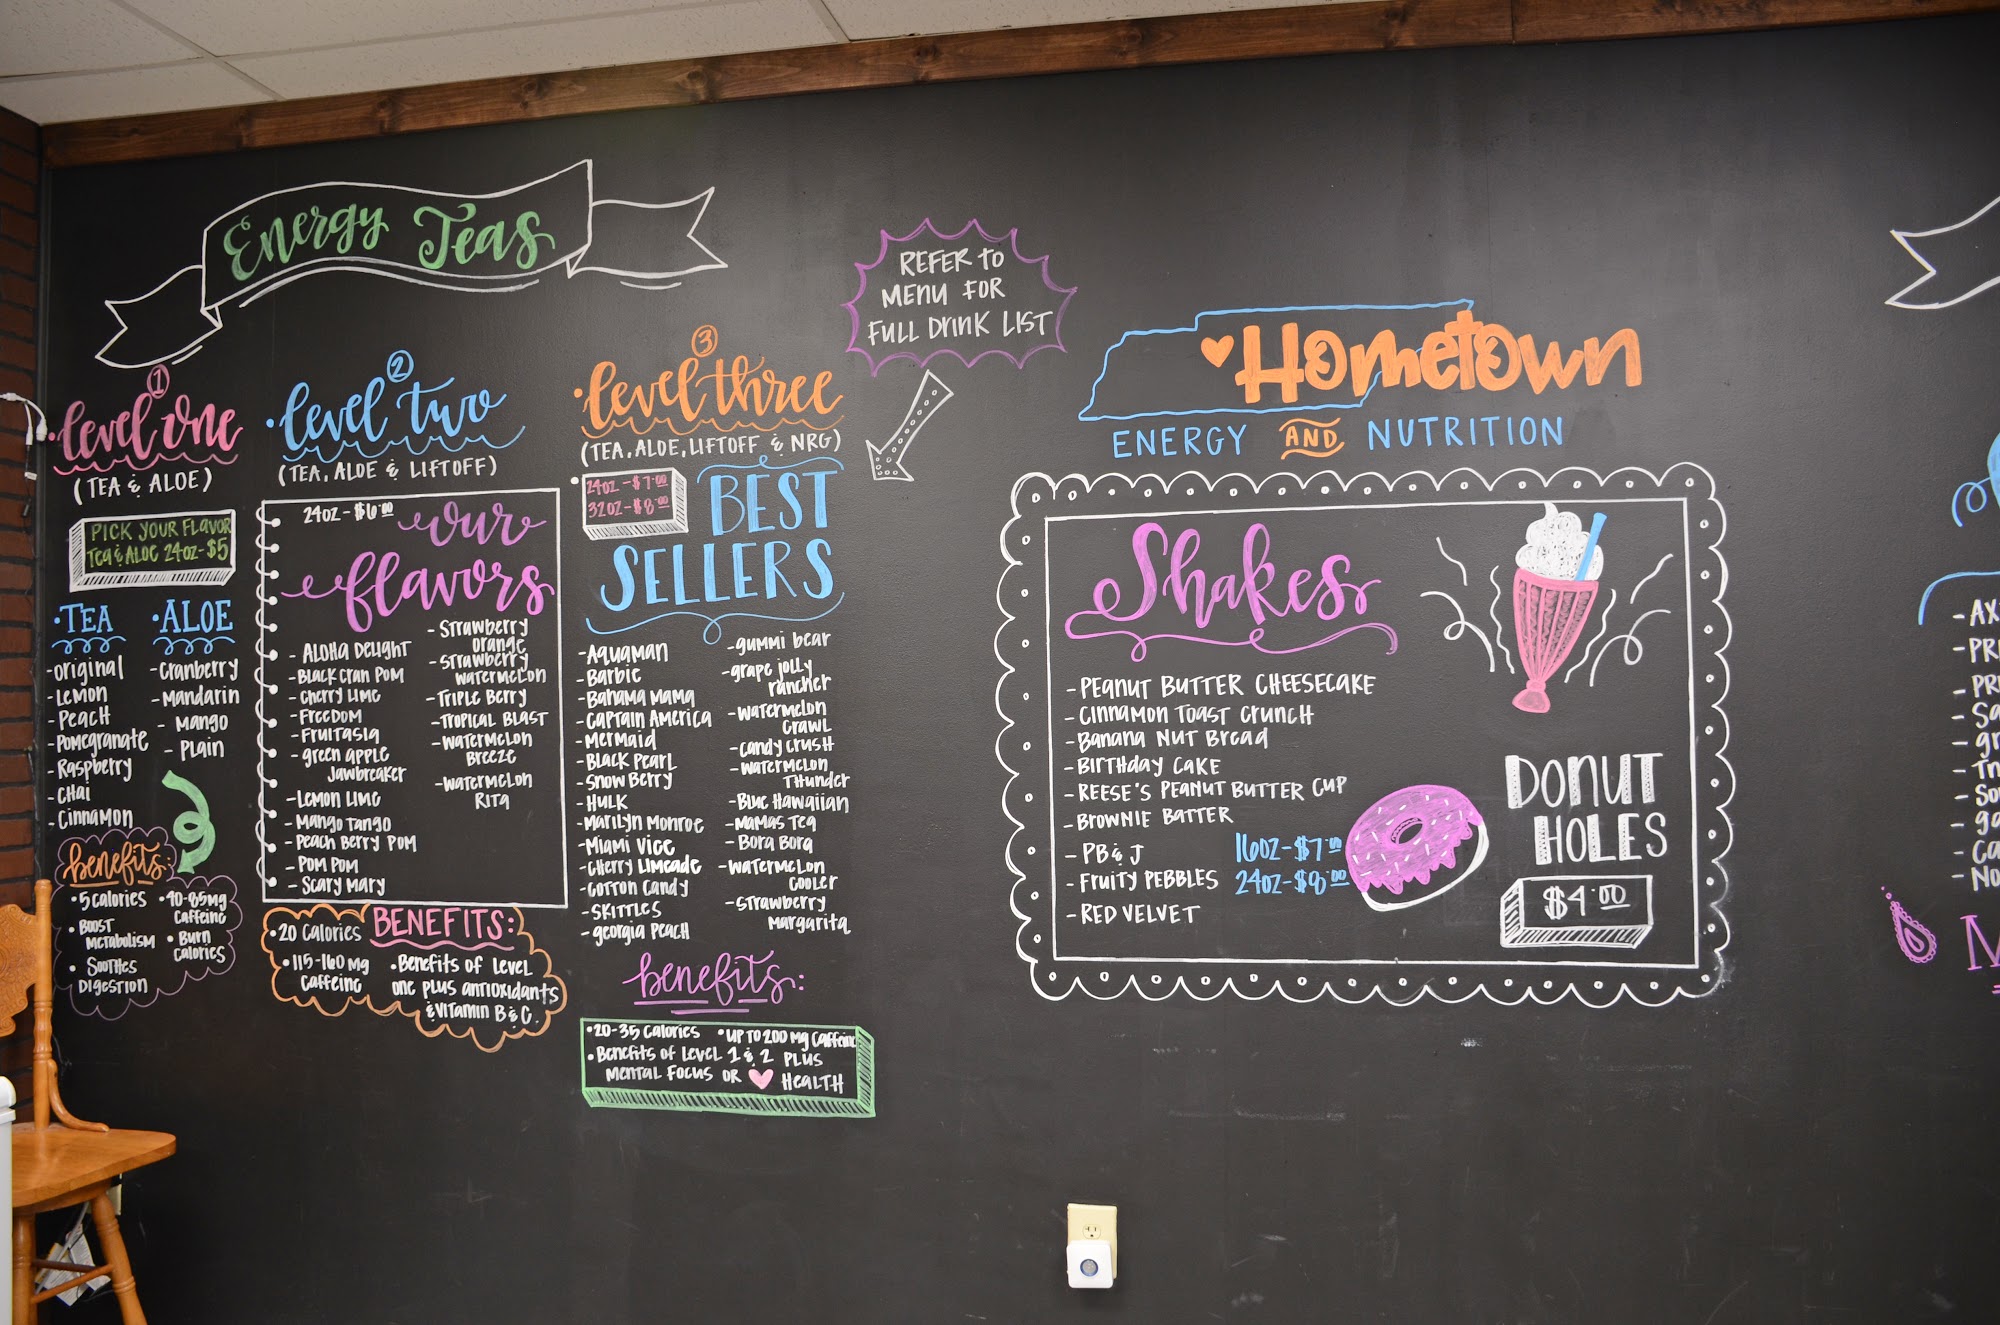 Energy Teas
REFER TO
MENU FOR
FULL DRINK LIST
1
• Level One
(TEA & ALOE)
PICK YOUR FLAVOR
TEA & ALOE 24OZ - $5
• TEA
- Original
- Lemon
- Peach
- Pomegranate
- Raspberry
- Chai
- Cinnamon
• ALOE
- Cranberry
- Mandarin
- Mango
- Plain
benefits:
• 5 calories
• Boost
Metabolism
• Soothes
Digestion
Caffeine
• Burn
Calories
2
• Level Two
(TEA, ALOE & LIFTOFF)
24OZ - $6.00
our
flavors
- Aloha Delight
- Black Cran Pom
- Cherry Lime
- Freedom
- Fruitasia
- Green Apple
Jawbreaker
- Lemon Lime
- Mango Tango
- Peach Berry Pom
- Pom Pom
- Scary Mary
- Strawberry
Orange
- Strawberry
Watermelon
- Triple Berry
- Tropical Blast
- Watermelon
Breeze
- Watermelon
Rita
BENEFITS:
• 20 Calories
• 115-160 mg
Caffeine
• Benefits of Level
one plus antioxidants
& Vitamin B & C.
3
• Level Three
(TEA, ALOE, LIFTOFF & NRG)
• 24OZ - $7.00
32OZ - $8.00
BEST
SELLERS
- Aquaman
- Barbie
- Bahama Mama
- Captain America
- Mermaid
- Black Pearl
- Snow Berry
- Hulk
- Marilyn Monroe
- Miami Vice
- Cherry Limeade
- Cotton Candy
- Skittles
- Georgia Peach
- gummi bear
- grape jolly
rancher
- Watermelon
Crawl
- Candy Crush
- Watermelon
Thunder
- Blue Hawaiian
- Mamas Tea
- Bora Bora
- Watermelon
Cooler
- Strawberry
Margarita
benefits:
• 20-35 Calories • up to 200 mg Caffeine
• Benefits of Level 1 & 2 plus
mental focus or health
Hometown
ENERGY AND NUTRITION
Shakes
- Peanut Butter Cheesecake
- Cinnamon Toast Crunch
- Banana Nut Bread
- Birthday Cake
- Reese's Peanut Butter Cup
- Brownie Batter
- PB & J
- Fruity Pebbles
- Red Velvet
16OZ - $7.00
24OZ - $8.00
DONUT
HOLES
$4.00